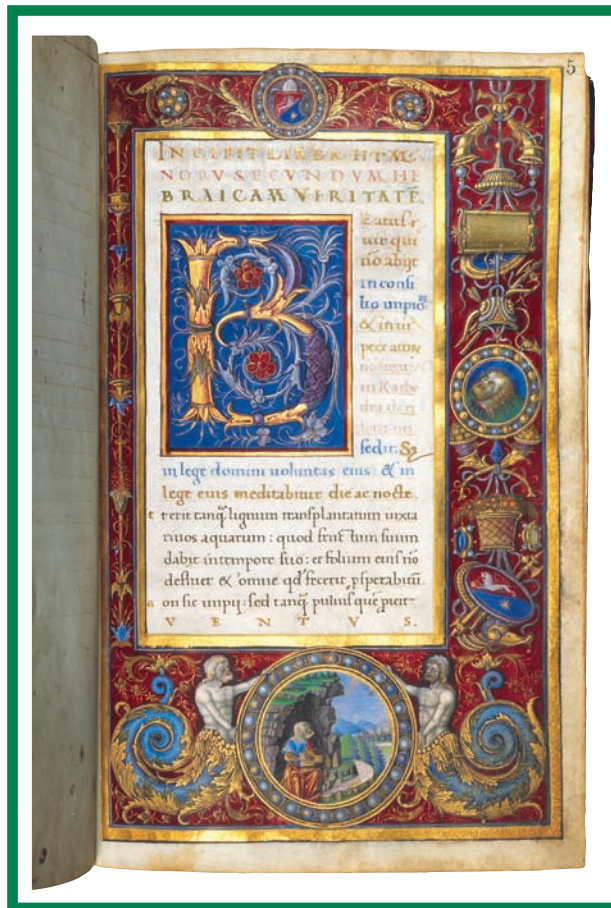 5
INCIPIT LIBER HYM
NORŪ SECUNDUM HE
BRAICAM VERITATĒ
B
Eatus
uir qui
nō abijt
in consi
lio impioꝝ
& in ui
peccatoꝝ
in
sedit. S
in lege domini uoluntas eius: & in
lege eius meditabitur die ac nocte.
erit tanq̄ lignum transplantatum iuxta
riuos aquarum: quod fructum suum
dabit in tempore suo: et folium eius nō
defluet & omne qd̓ fecerit, ꝓsperabitū
on sic impij: sed tanq̄ puluis quē picit
VENTUS.